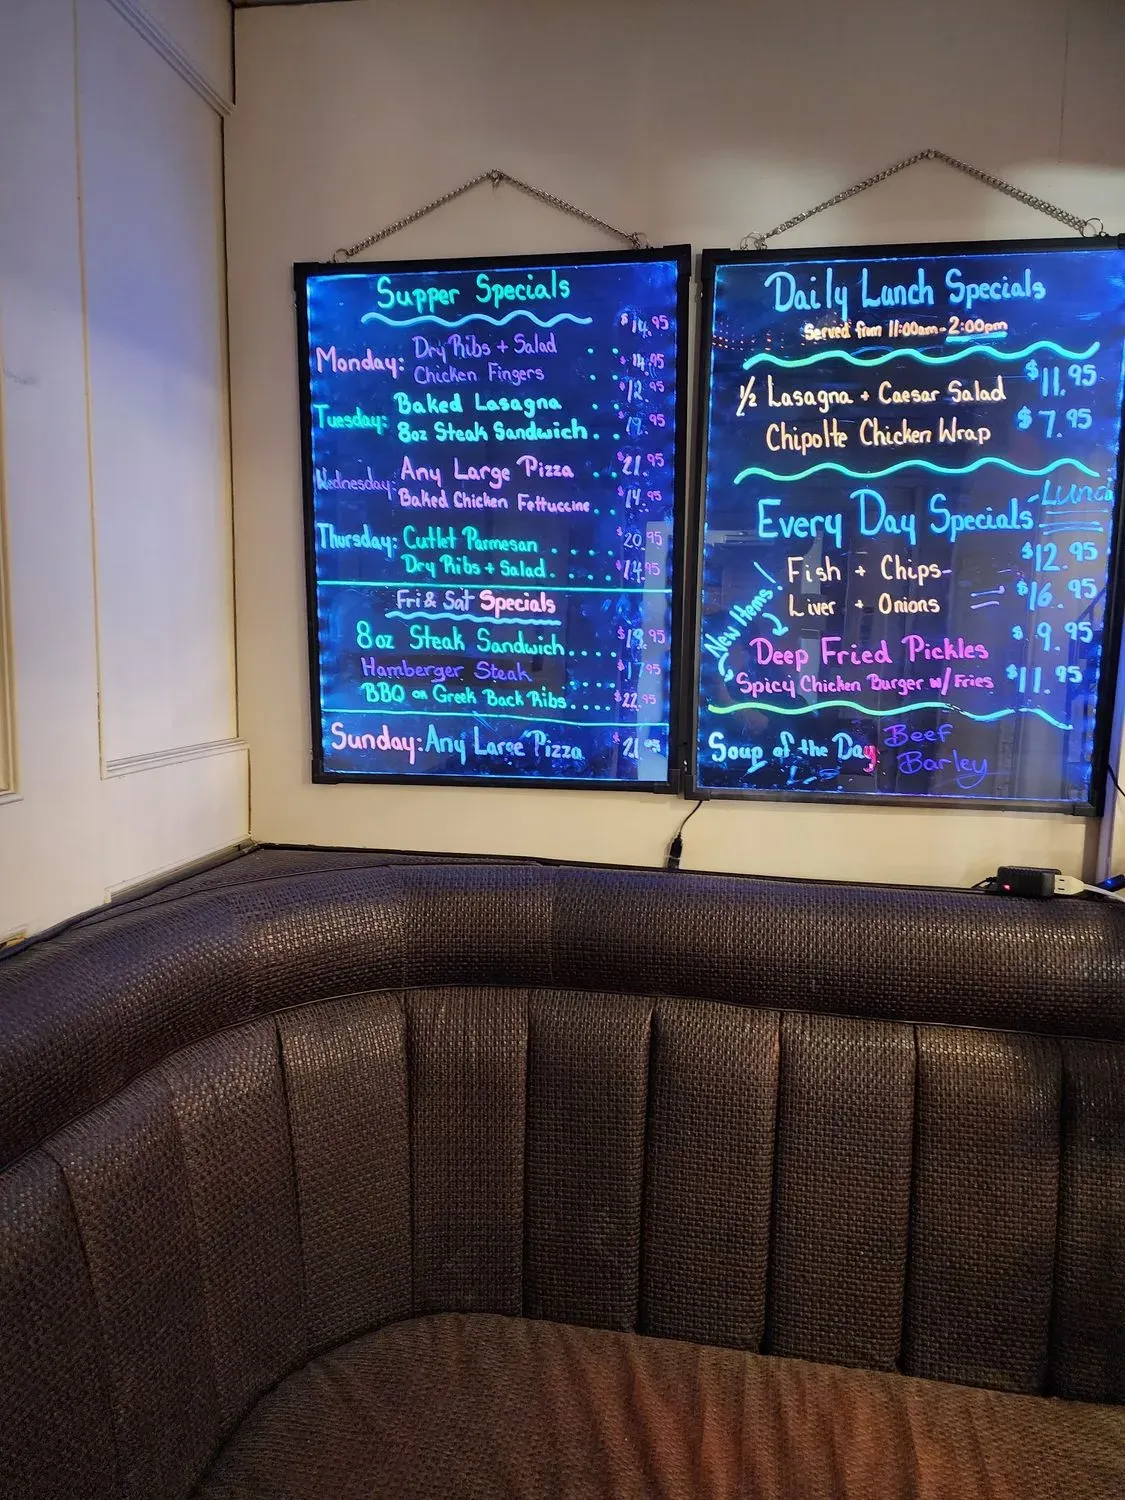 Supper Specials
Monday: Dry Ribs + Salad . . $14.95
Chicken Fingers . . $14.95
Tuesday: Baked Lasagna . . $12.95
8oz Steak Sandwich . . $19.95
Wednesday: Any Large Pizza . . $21.95
Baked Chicken Fettuccine . . $14.95
Thursday: Cutlet Parmesan . . . . . $20.95
Dry Ribs + Salad . . . . $14.95
Fri & Sat Specials
8oz Steak Sandwich . . . . $19.95
Hamberger Steak . . . . $17.95
BBQ or Greek Back Ribs . . . . $22.95
Sunday: Any Large Pizza $21.95
Daily Lunch Specials
Served from 11:00am - 2:00pm
1/2 Lasagna + Caesar Salad $11.95
Chipolte Chicken Wrap $7.95
Every Day Specials - Lunch
Fish + Chips - $12.95
Liver + Onions $16.95
New Items!
Deep Fried Pickles $9.95
Spicy Chicken Burger w/ Fries $11.95
Soup of the Day Beef
Barley